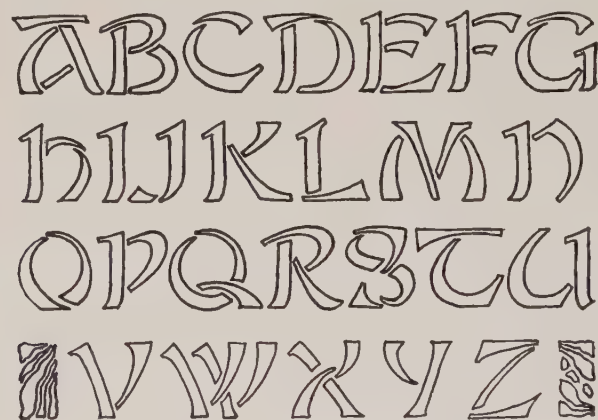 ABCDEFG
hIJKLMN
OPQRSTU
VWXYZ